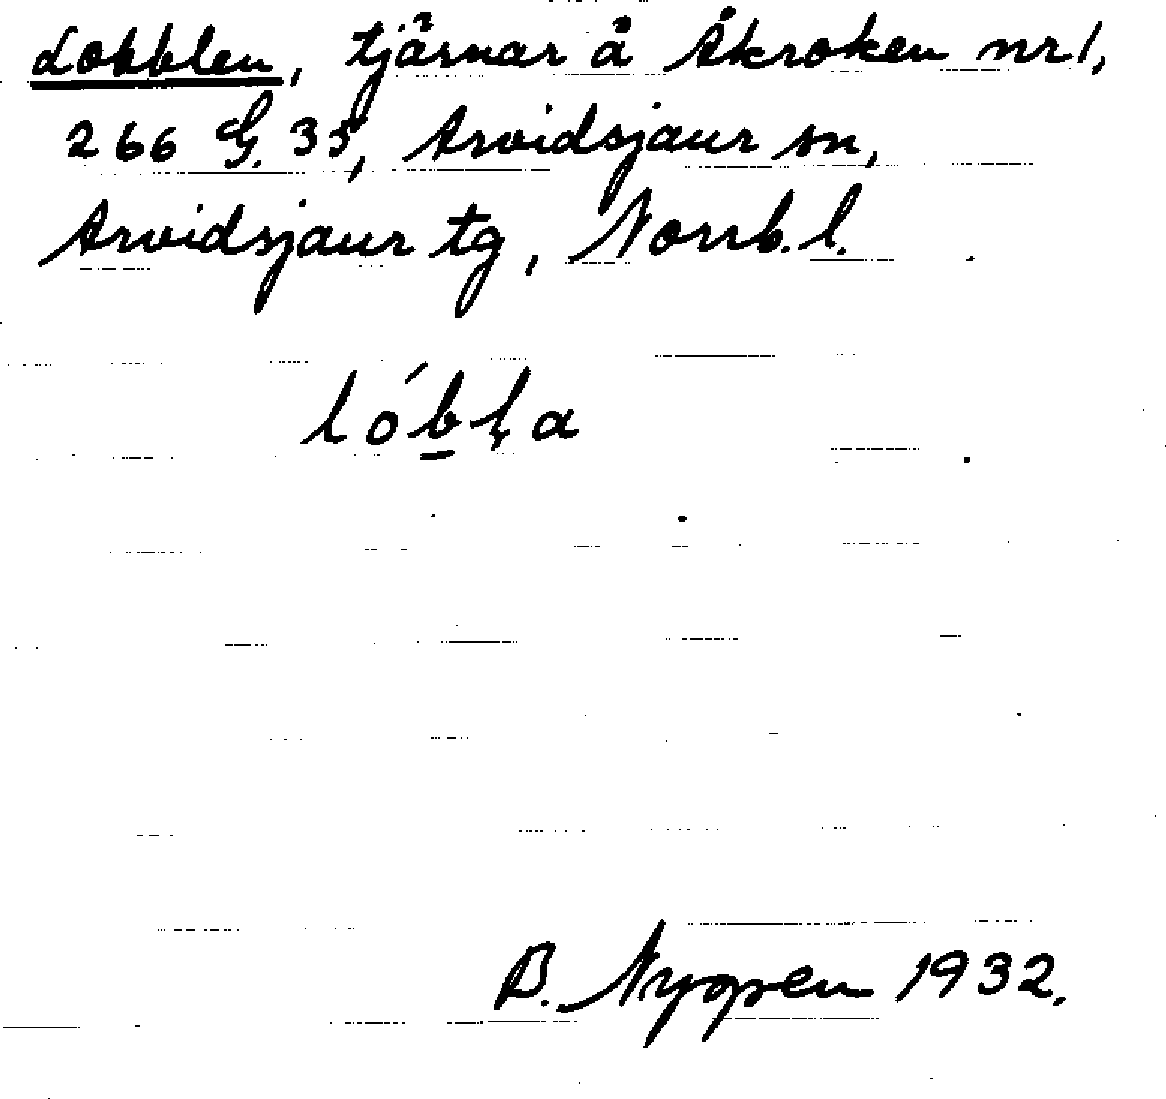 Lobblen, tjärnar å Åkroken nr 1,
266 G. 35, Arvidsjaur sn,
Arvidsjaur tg, Norrb. l.
lób̲l̥a
B. Nygren 1932.